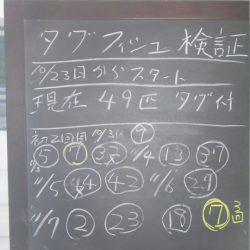 タグフィッシュ 検証
10/23日からスタート
現在 49匹 タグ付
初2回目 10/31 ⑨
10/3 ⑤ ⑦ ㉜ 11/4 ⑬ ㊲
11/5 ㊹ ㊷ 11/6 ㉙
11/7 ② ㉓ ⑱ ⑦ 3回目